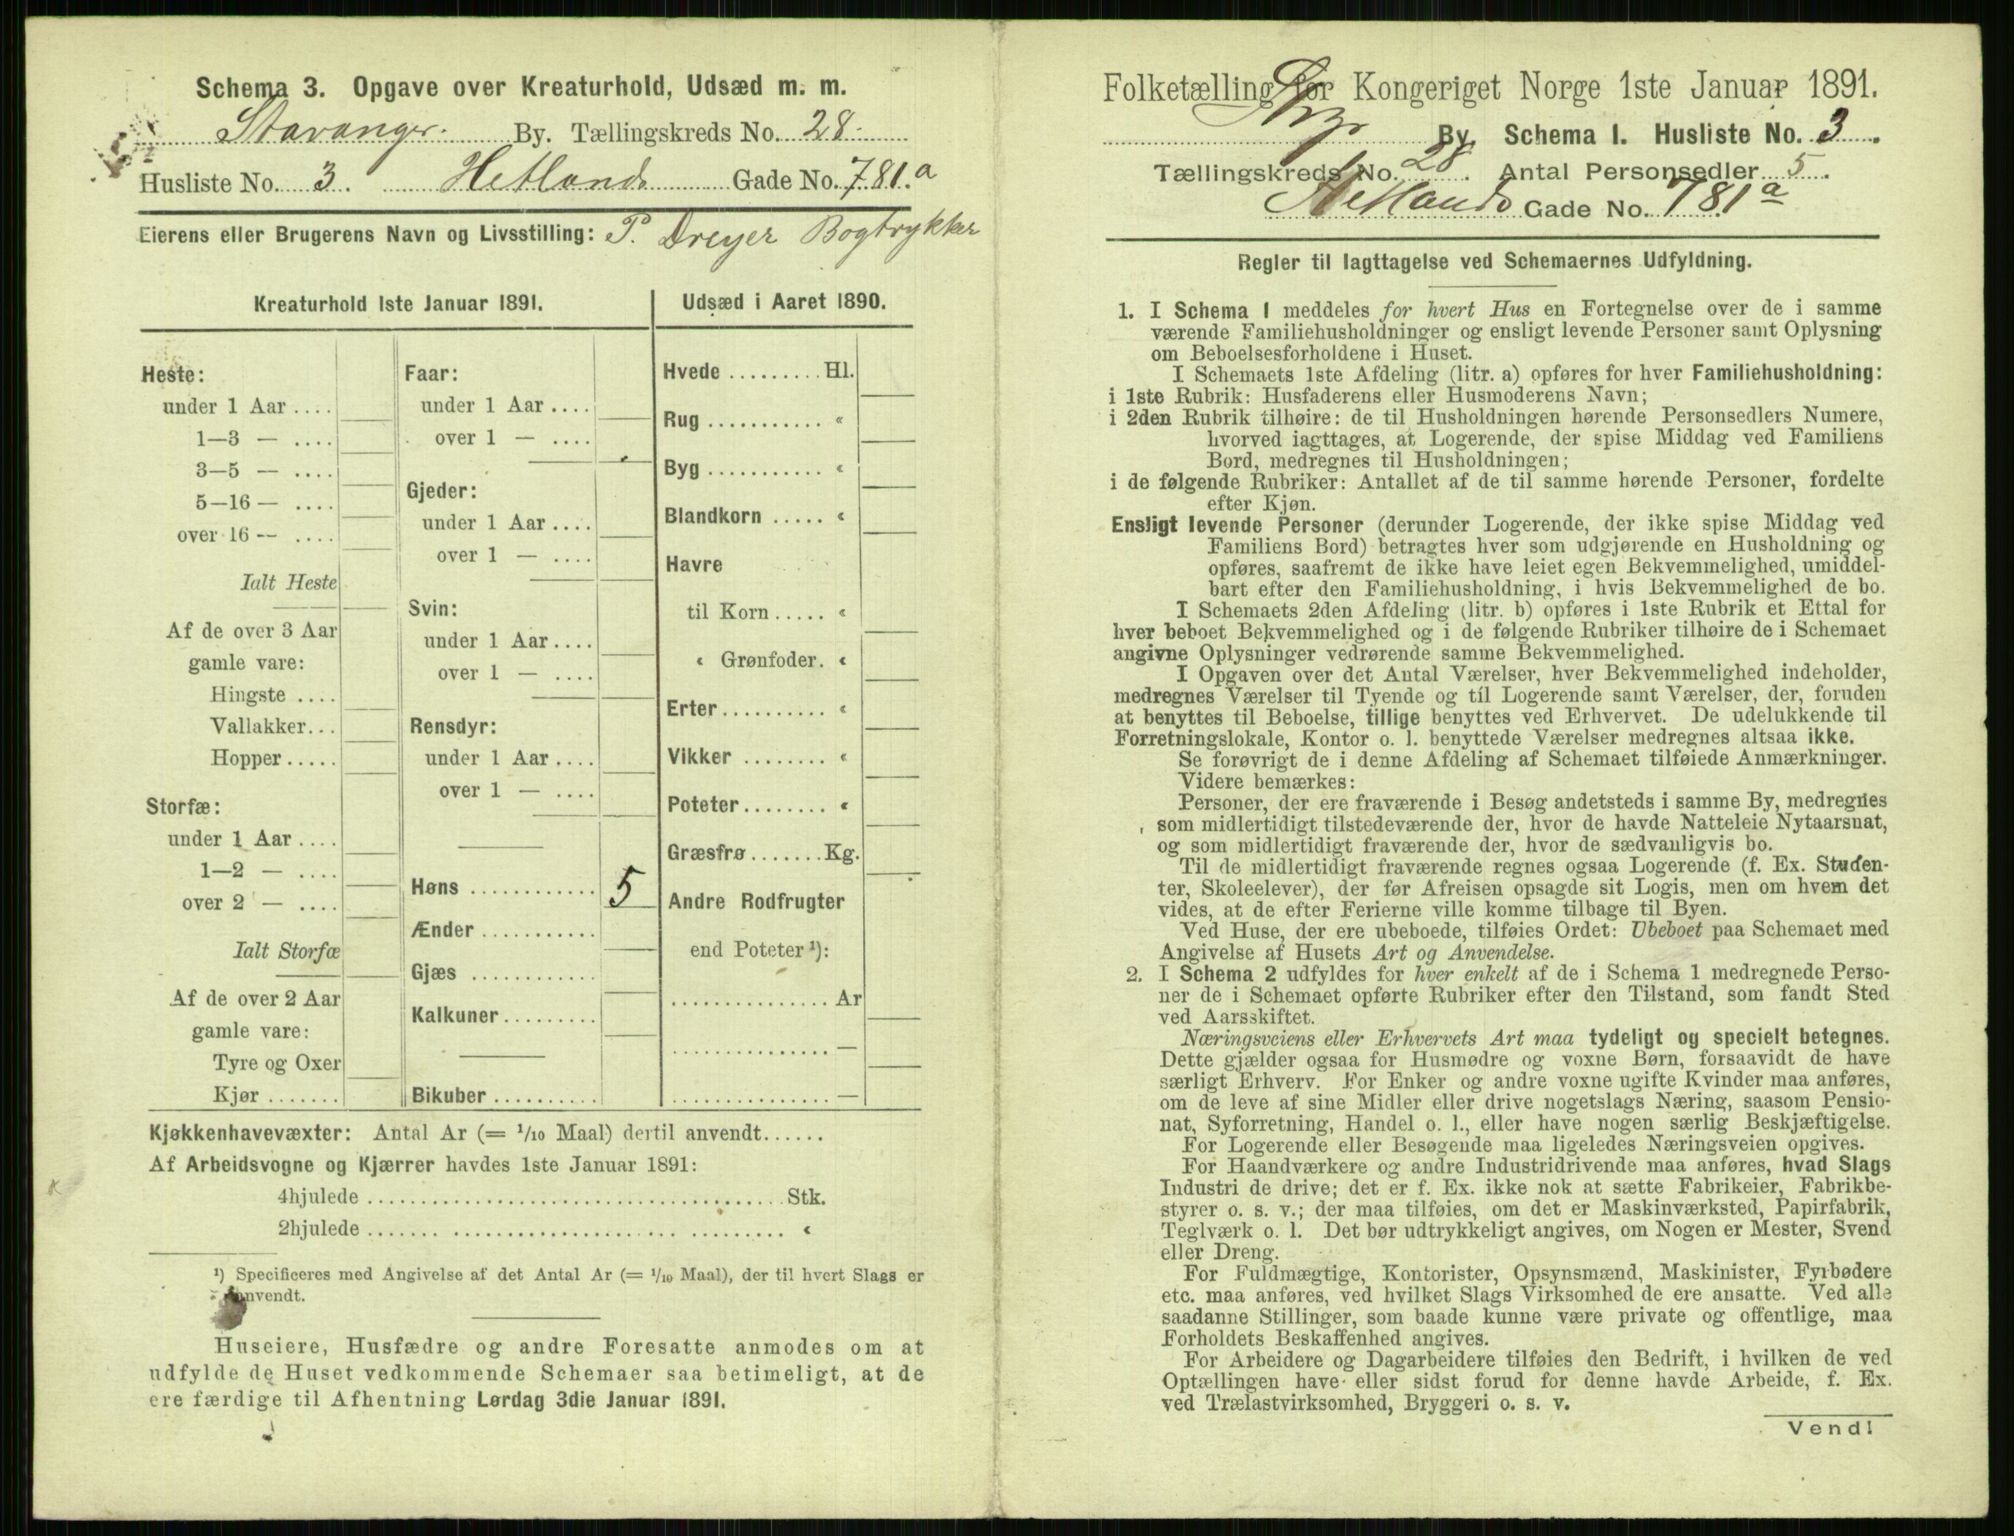 Schema 3. Opgave over Kreaturhold, Udsæd m. m.
Stavanger. By. Tællingskreds No. 28.
Husliste No. 3. Hetlands Gade No. 781.a
Eierens eller Brugerens Navn og Livsstilling: P. Dreyer Bogtrykker
Kreaturhold 1ste Januar 1891.
Heste:
under 1 Aar ....
1—3 — ....
3—5 — ....
5—16 — ....
over 16 — ....
Ialt Heste
Af de over 3 Aar
gamle vare:
Hingste ....
Vallakker...
Hopper.....
Storfæ:
under 1 Aar ....
1—2 — ....
over 2 — ....
Ialt Storfæ
Af de over 2 Aar
gamle vare:
Tyre og Oxer
Kjør .......
Faar:
under 1 Aar ....
over 1 — ....
Gjeder:
under 1 Aar ....
over 1 — ....
Svin:
under 1 Aar ....
over 1 — ....
Rensdyr:
under 1 Aar ....
over 1 — ....
Høns ............ 5
Ænder ...........
Gjæs ............
Kalkuner.........
Bikuber ..........
Udsæd i Aaret 1890.
Hvede ......... Hl.
Rug ........... «
Byg ........... «
Blandkorn ..... «
Havre
til Korn ..... «
« Grønfoder. «
Erter.......... «
Vikker ........ «
Poteter........ «
Græsfrø ....... Kg.
Andre Rodfrugter
end Poteter ¹):
............... Ar
............... —
............... —
Kjøkkenhavevæxter: Antal Ar (= 1/10 Maal) dertil anvendt......
Af Arbeidsvogne og Kjærrer havdes 1ste Januar 1891:
4hjulede ........................................ Stk.
2hjulede ........................................ «
¹) Specificeres med Angivelse af det Antal Ar (= 1/10 Maal), der til hvert Slags er
anvendt.
Huseiere, Husfædre og andre Foresatte anmodes om at
udfylde de Huset vedkommende Schemaer saa betimeligt, at de
ere færdige til Afhentning Lørdag 3die Januar 1891.
Folketælling for Kongeriget Norge 1ste Januar 1891.
By. Schema 1. Husliste No. 3.
Tællingskreds No. 28. Antal Personsedler 5.
Hetlands Gade No. 781a
Regler til Iagttagelse ved Schemaernes Udfyldning.
1. I Schema 1 meddeles for hvert Hus en Fortegnelse over de i samme
værende Familiehusholdninger og ensligt levende Personer samt Oplysning
om Beboelsesforholdene i Huset.
I Schemaets 1ste Afdeling (litr. a) opføres for hver Familiehusholdning:
i 1ste Rubrik: Husfaderens eller Husmoderens Navn;
i 2den Rubrik tilhøire: de til Husholdningen hørende Personsedlers Numere,
hvorved iagttages, at Logerende, der spise Middag ved Familiens
Bord, medregnes til Husholdningen;
i de følgende Rubriker: Antallet af de til samme hørende Personer, fordelte
efter Kjøn.
Ensligt levende Personer (derunder Logerende, der ikke spise Middag ved
Familiens Bord) betragtes hver som udgjørende en Husholdning og
opføres, saafremt de ikke have leiet egen Bekvemmelighed, umiddel-
bart efter den Familiehusholdning, i hvis Bekvemmelighed de bo.
I Schemaets 2den Afdeling (litr. b) opføres i 1ste Rubrik et Ettal for
hver beboet Bekvemmelighed og i de følgende Rubriker tilhøire de i Schemaet
angivne Oplysninger vedrørende samme Bekvemmelighed.
I Opgaven over det Antal Værelser, hver Bekvemmelighed indeholder,
medregnes Værelser til Tyende og til Logerende samt Værelser, der, foruden
at benyttes til Beboelse, tillige benyttes ved Erhvervet. De udelukkende til
Forretningslokale, Kontor o. l. benyttede Værelser medregnes altsaa ikke.
Se forøvrigt de i denne Afdeling af Schemaet tilføiede Anmærkninger.
Videre bemærkes:
Personer, der ere fraværende i Besøg andetsteds i samme By, medregnes
som midlertidigt tilstedeværende der, hvor de havde Natteleie Nytaarsnat,
og som midlertidigt fraværende der, hvor de sædvanligvis bo.
Til de midlertidigt fraværende regnes ogsaa Logerende (f. Ex. Studen-
ter, Skoleelever), der før Afreisen opsagde sit Logis, men om hvem det
vides, at de efter Ferierne ville komme tilbage til Byen.
Ved Huse, der ere ubeboede, tilføies Ordet: Ubeboet paa Schemaet med
Angivelse af Husets Art og Anvendelse.
2. I Schema 2 udfyldes for hver enkelt af de i Schema 1 medregnede Perso-
ner de i Schemaet opførte Rubriker efter den Tilstand, som fandt Sted
ved Aarsskiftet.
Næringsveiens eller Erhvervets Art maa tydeligt og specielt betegnes.
Dette gjælder ogsaa for Husmødre og voxne Børn, forsaavidt de have
særligt Erhverv. For Enker og andre voxne ugifte Kvinder maa anføres,
om de leve af sine Midler eller drive nogetslags Næring, saasom Pensio-
nat, Syforretning, Handel o. l., eller have nogen særlig Beskjæftigelse.
For Logerende eller Besøgende maa ligeledes Næringsveien opgives.
For Haandværkere og andre Industridrivende maa anføres, hvad Slags
Industri de drive; det er f. Ex. ikke nok at sætte Fabrikeier, Fabrikbe-
styrer o. s. v.; der maa tilføies, om det er Maskinværksted, Papirfabrik,
Teglværk o. l. Det bør udtrykkeligt angives, om Nogen er Mester, Svend
eller Dreng.
For Fuldmægtige, Kontorister, Opsynsmænd, Maskinister, Fyrbødere
etc. maa anføres, ved hvilket Slags Virksomhed de ere ansatte. Ved alle
saadanne Stillinger, som baade kunne være private og offentlige, maa
Forholdets Beskaffenhed angives.
For Arbeidere og Dagarbeidere tilføies den Bedrift, i hvilken de ved
Optællingen have eller sidst forud for denne havde Arbeide, f. Ex.
ved Trælastvirksomhed, Bryggeri o. s. v.
Vend!